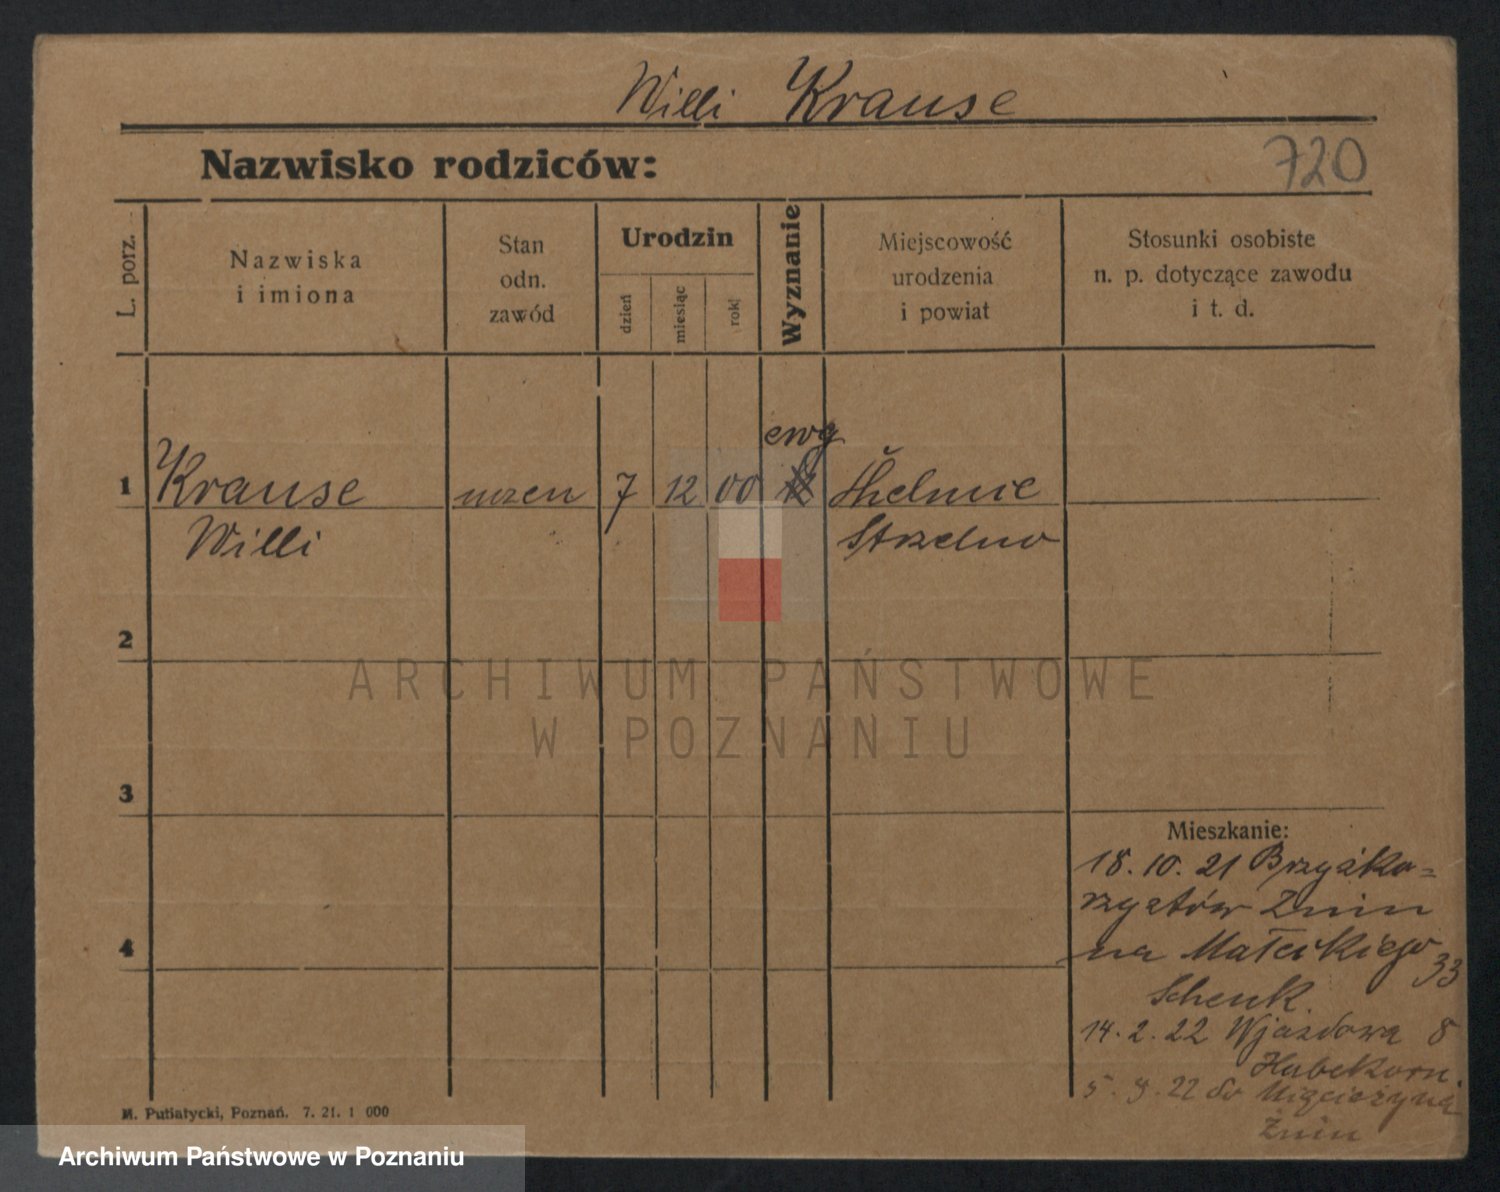 Willi Krause
Nazwisko rodziców:
720
L. porz.
Nazwiska
i imiona
Stan
odn.
zawód
Urodzin
dzień
miesiąc
rok
Wyznanie
Miejscowość
urodzenia
i powiat
Stosunki osobiste
n. p. dotyczące zawodu
i t. d.
ewg
1 Krause uczen 7 12 00
Willi Strzelno
2
ARCHIWUM PAŃSTWOWE
W POZNANIU
3
Mieszkanie:
18. 10. 21
Żnin
4
na 33
Schenk
14. 2. 22 Wjazdowa 8
Habekorn.
5. 9. 22 do
Żnin
M. Putiatycki, Poznań. 7. 21. 1 000
Archiwum Państwowe w Poznaniu